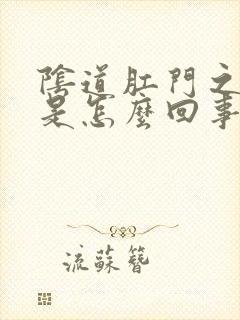 陰道肛門之
是怎麼回事
流蘇簪